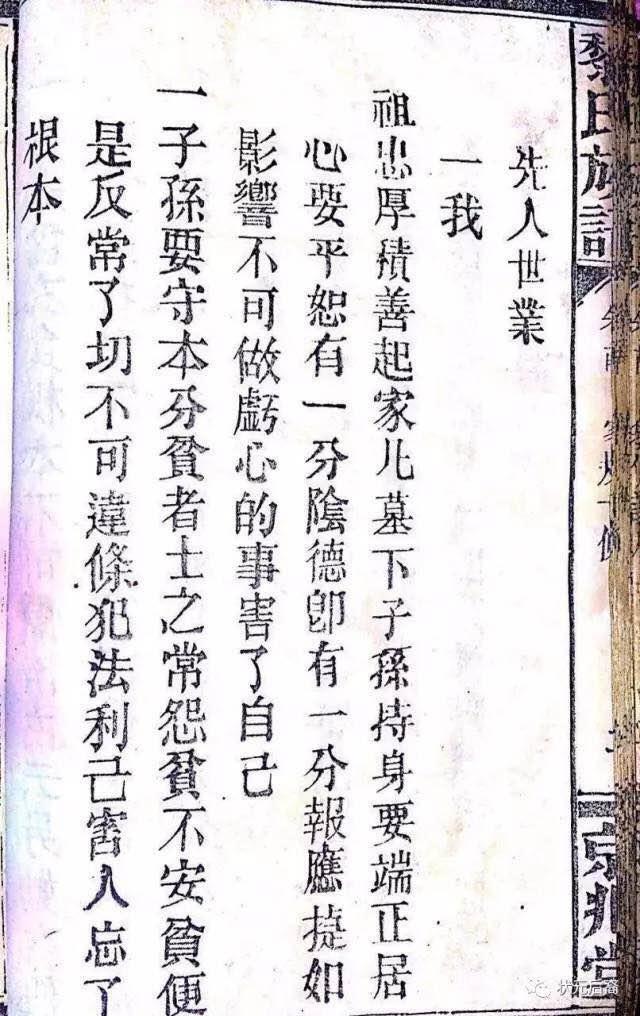 先人世業
一我
祖忠厚積善起家凡墓下子孫持身要端正居
心要平恕有一分陰德卽有一分報應捷如
影響不可做虧心的事害了自己
一子孫要守本分貧者士之常怨貧不安貧便
是反常了切不可違條犯法利己害人忘了
根本
黎氏族譜
京兆堂
状元后裔